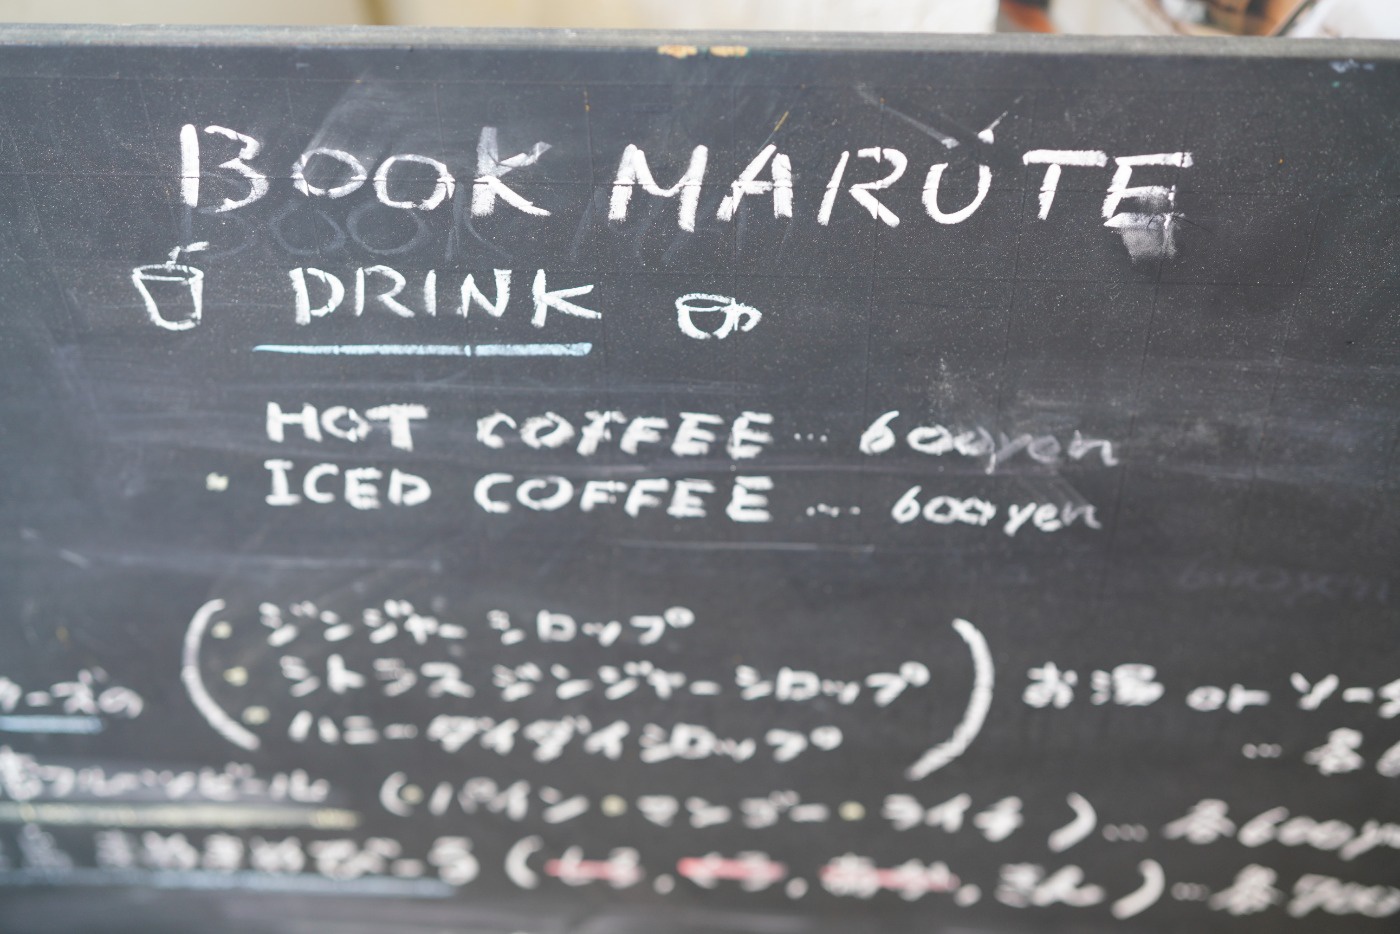 BOOK MARUTE
DRINK
HOT COFFEE … 600yen
・ICED COFFEE … 600yen
・ジンジャーシロップ
ーズの ・シトラスジンジャーシロップ お湯 or ソー
・ハニーダイダイシロップ
… 各
フルーツビール (・パイン・マンゴー・ライチ) … 各600y
びーる (しろ、くろ、あか、きん) … 各700